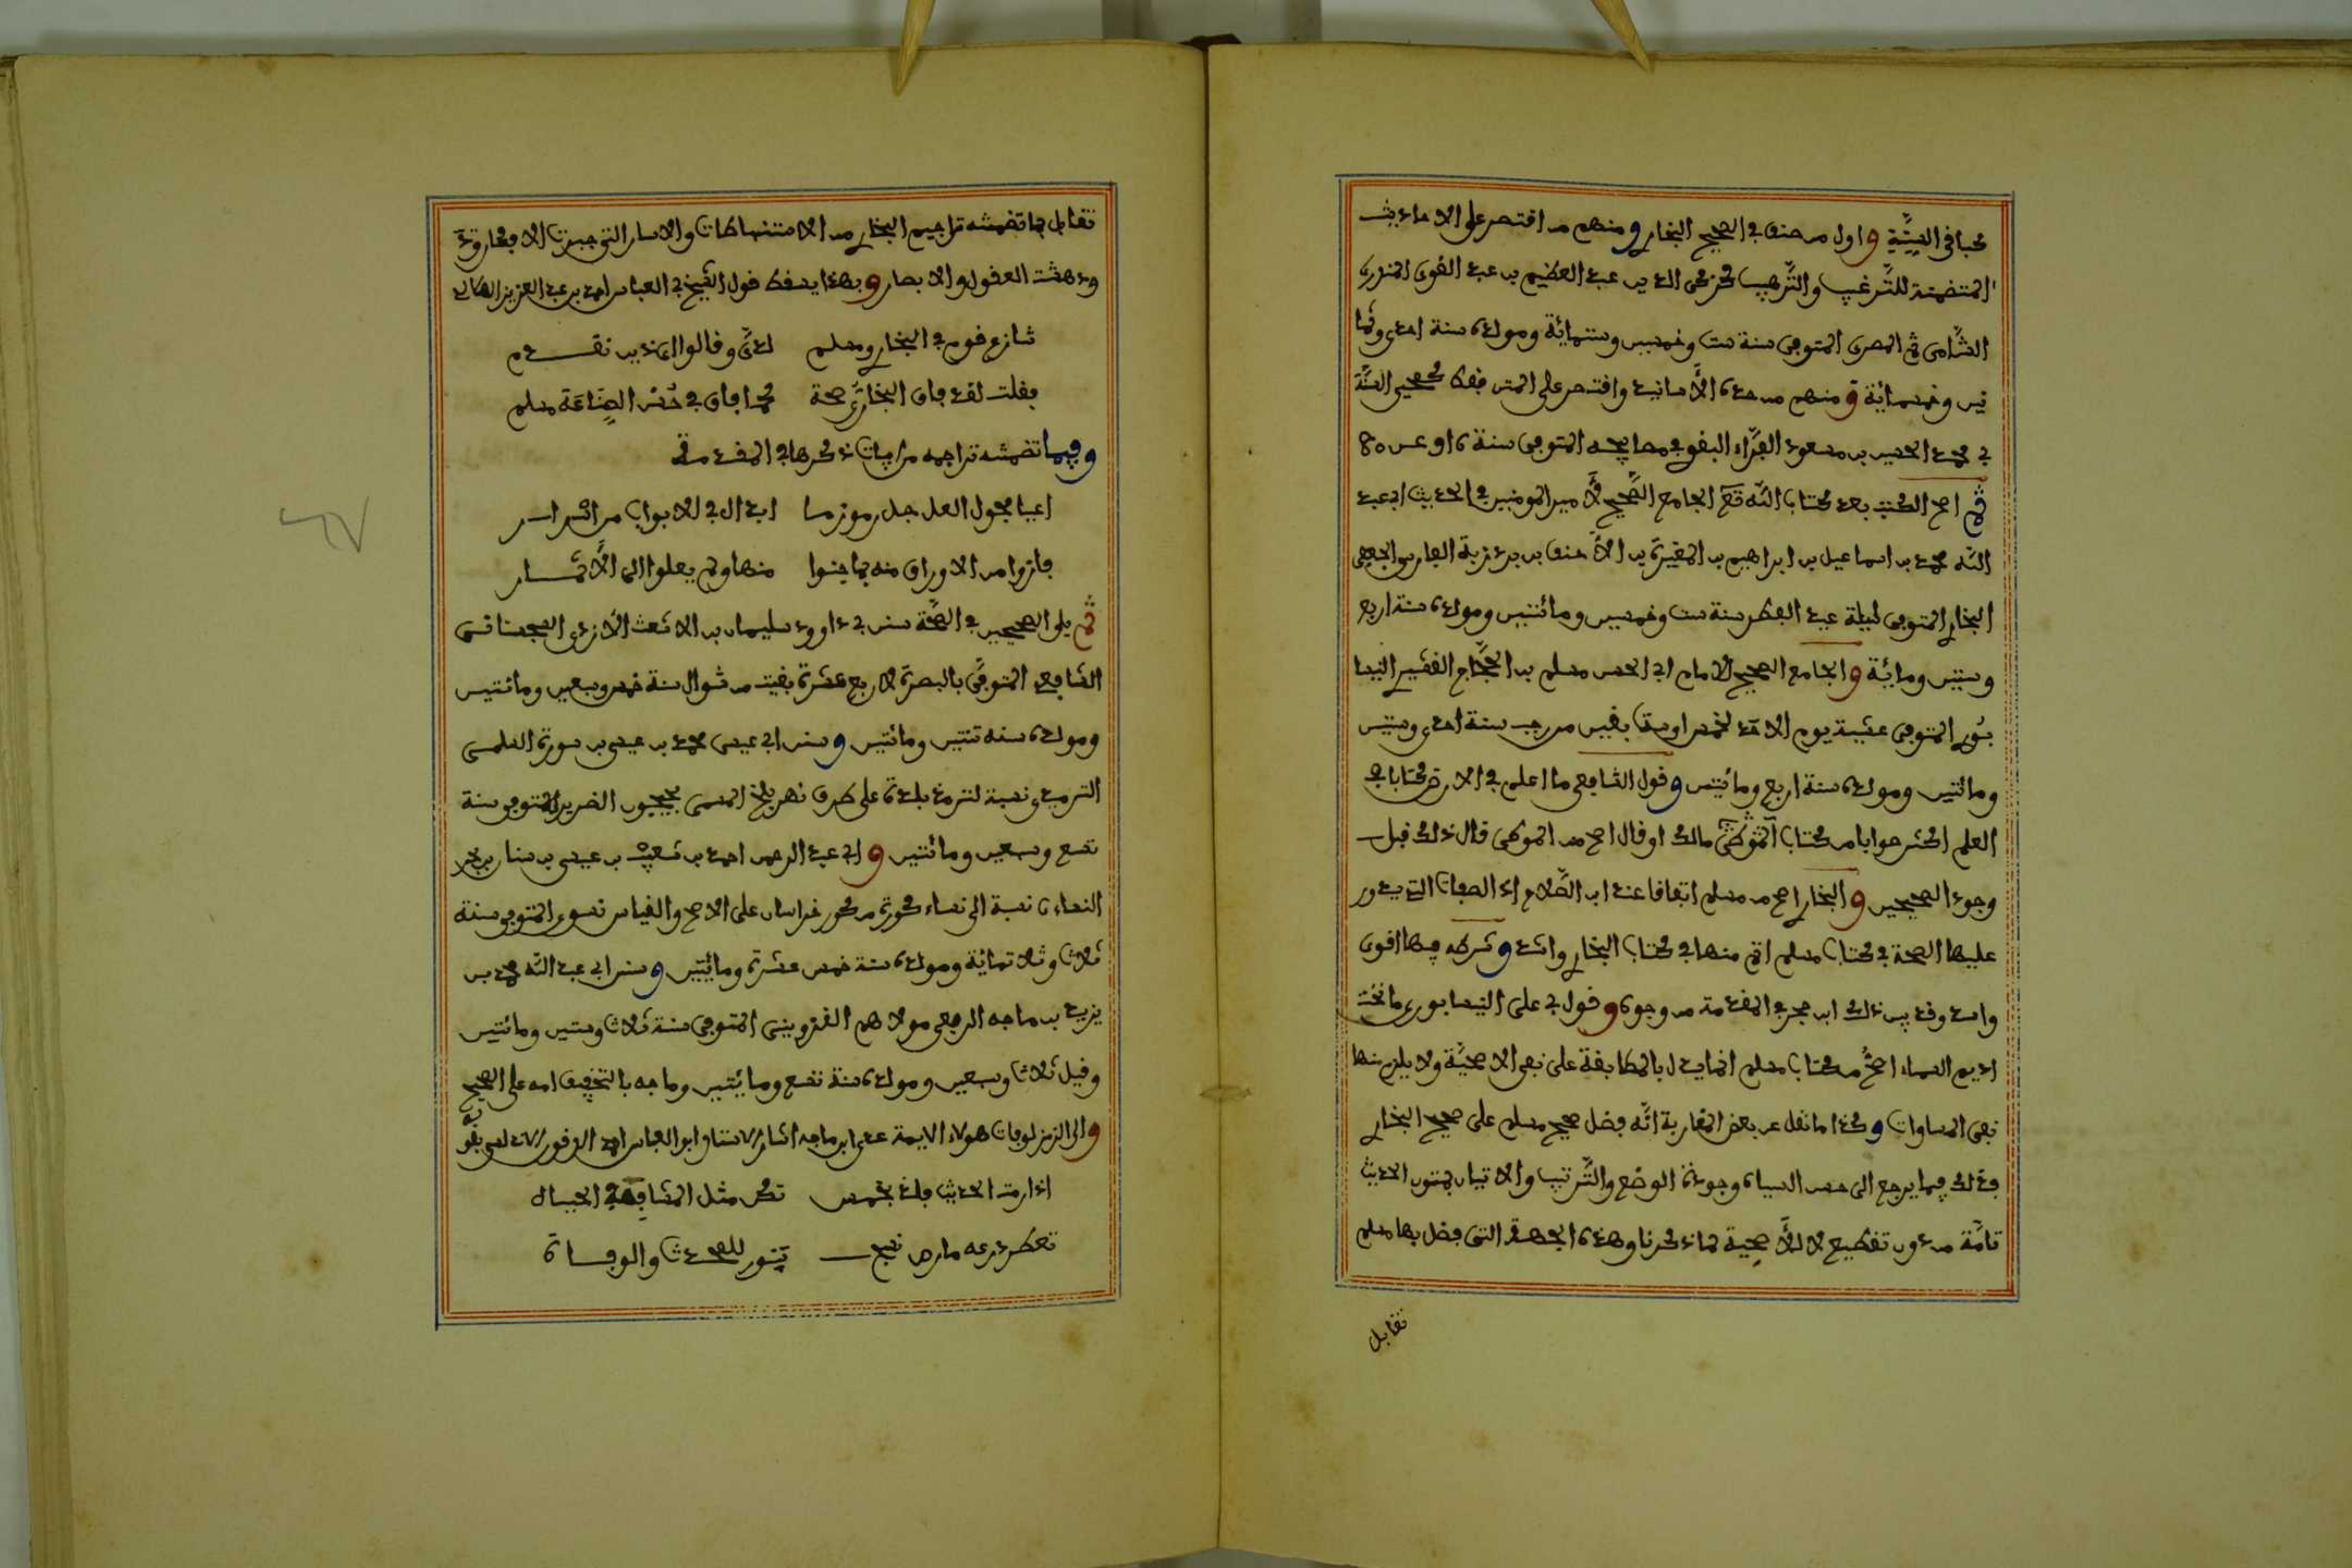 كباقي الستة واول من صنف في الصحيح البخاري ومنهم من اقتصر على الاحاديث
المتضمنة للترغيب والترهيب كزكي الدين عبد العظيم بن عبد القوى المنذرى
الشامى ثم المصرى المتوفى سنة ست وخمسين وستمائة ومولده سنة احدى وثما
نين وخمسمائة ومنهم من حذف الاسانيد واقتصر على المتن فقط كمحيى السنة
ابي محمد الحسين بن مسعود الفراء البغوى في مصابيحه المتوفى سنة
ثم اصح الكتب بعد كتاب الله تع الجامع الصحيح لامير المومنين في الحديث ابي عبد
الله محمد بن اسماعيل بن ابراهيم بن المغيرة بن الاحنف بن بردزبة الفارسي الجعفي
البخاري المتوفى ليلة عيد الفطر سنة ست وخمسين ومائتين ومولده سنة اربع
وستين ومائية والجامع الصحيح للامام ابي الحسن مسلم بن الحجاج القشيري النيسا
بوري المتوفى عشية يوم الاحد لخمس او ست بقين من رجب سنة احدى وستين
ومائتين ومولده سنة اربع ومائتين وقول الشافعي ما اعلم في الارض كتابا في
العلم اكثر صوابا من كتاب الموطى مالك او قال اصح من الموطى قال ذلك قبل
وجود الصحيحين والبخاري اصح من مسلم اتفاقا عند ابن الصلاح اذ الصفات التي يدور
عليها الصحة في كتاب مسلم اتم منها في كتاب البخاري واشد وشرطه فيها اقوى
واسد وقد بين ذلك ابن حجر في المقدمة من وجوه وقول ابي على النيسابورى ما تحت
اديم السماء اصح من كتاب مسلم انما يدل بالمطابقة على نفي الاصحية ولا يلزم منها
نفي المساوات وكذا ما نقل عن بعض المغاربة انه فضل صحيح مسلم على صحيح البخاري
فذلك فيما يرجع الى حسن السياق وجودة الوضع والترتيب والاتيان بمتون الحديث
تامة من دون تقطيع لا للاصحية كما ذكرنا وهذه الجهة التى فضل بها مسلم
تقابل
تقابل بما تضمنته تراجيم البخاري من الاستنباطات والاسرار التي حيرت الافكار وقد
ودهشت العقول والابصار وبهذا يسقط قول الشيخ ابي العباس احمد بن عبد العزيز
تنازع قوم في البخاري ومسلم لدي وقالوا اي ذين تقدم
فقلت لقد فاق البخاري صحة كما فاق في حسن الصناعة مسلم
وفيما تضمنته تراجمه من ابيات ذكرها في المقدمة
اعيا فحول العلم حل رموز ما ابداه في الابواب من اسرار
فازوا من الاوراق منه بما جنوا منها ولم يصلوا الى الاثمار
ثم يلي الصحيحين في الصحة سنن ابي داوود سليمان بن الاشعث الازدي السجستاني
الشافعي المتوفى بالبصرة لاربع عشرة بقيت من شوال سنة خمس وسبعين ومائتين
ومولده سنة ثنتين ومائتين وسنن ابي عيسى محمد بن عيسى بن سورة السلمى
الترمذي نسبة لترمذ بلدة على طرف نهر بلخ المسمى بجيحون الضرير المتوفى سنة
تسع وسبعين ومائتين وابي عبد الرحمن احمد بن شعيب بن عيسى بن سنان بن بحر
النساءي نسبة الى نساء كورة من كور خراسان على الاصح والقياس نسوي المتوفى سنة
ثلاث وثلاثمائة ومولده سنة خمس عشرة ومائتين وسنن ابي عبد الله محمد بن
يزيد بن ماجه الربعي مولاهم القزويني المتوفى سنة ثلاث وستين ومائتين
وقيل ثلاث وسبعين ومولده سنة تسع ومائتين وماجه بالتخفيف امه على الصحيح
والى الرمز لوفات هولاء الايمة عدى ابن ماجه اشار الاستاذ ابو العباس احمد بقوله
اذا رمت الحديث فلذ بخمس تكن مثل الشافعي الحبال
تعطر درعه مارص نجب بنور للصحدث والوفاة